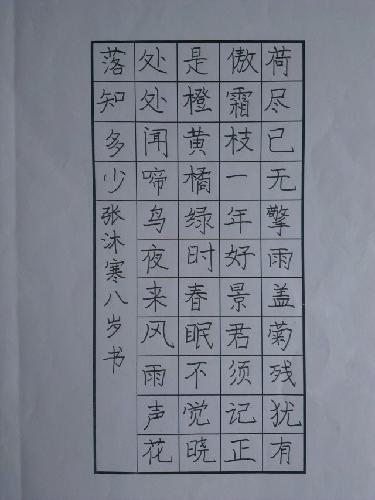 荷尽已无擎雨盖菊残犹有
傲霜枝一年好景君须记正
是橙黄橘绿时春眠不觉晓
处处闻啼鸟夜来风雨声花
落知多少
张沐寒八岁书